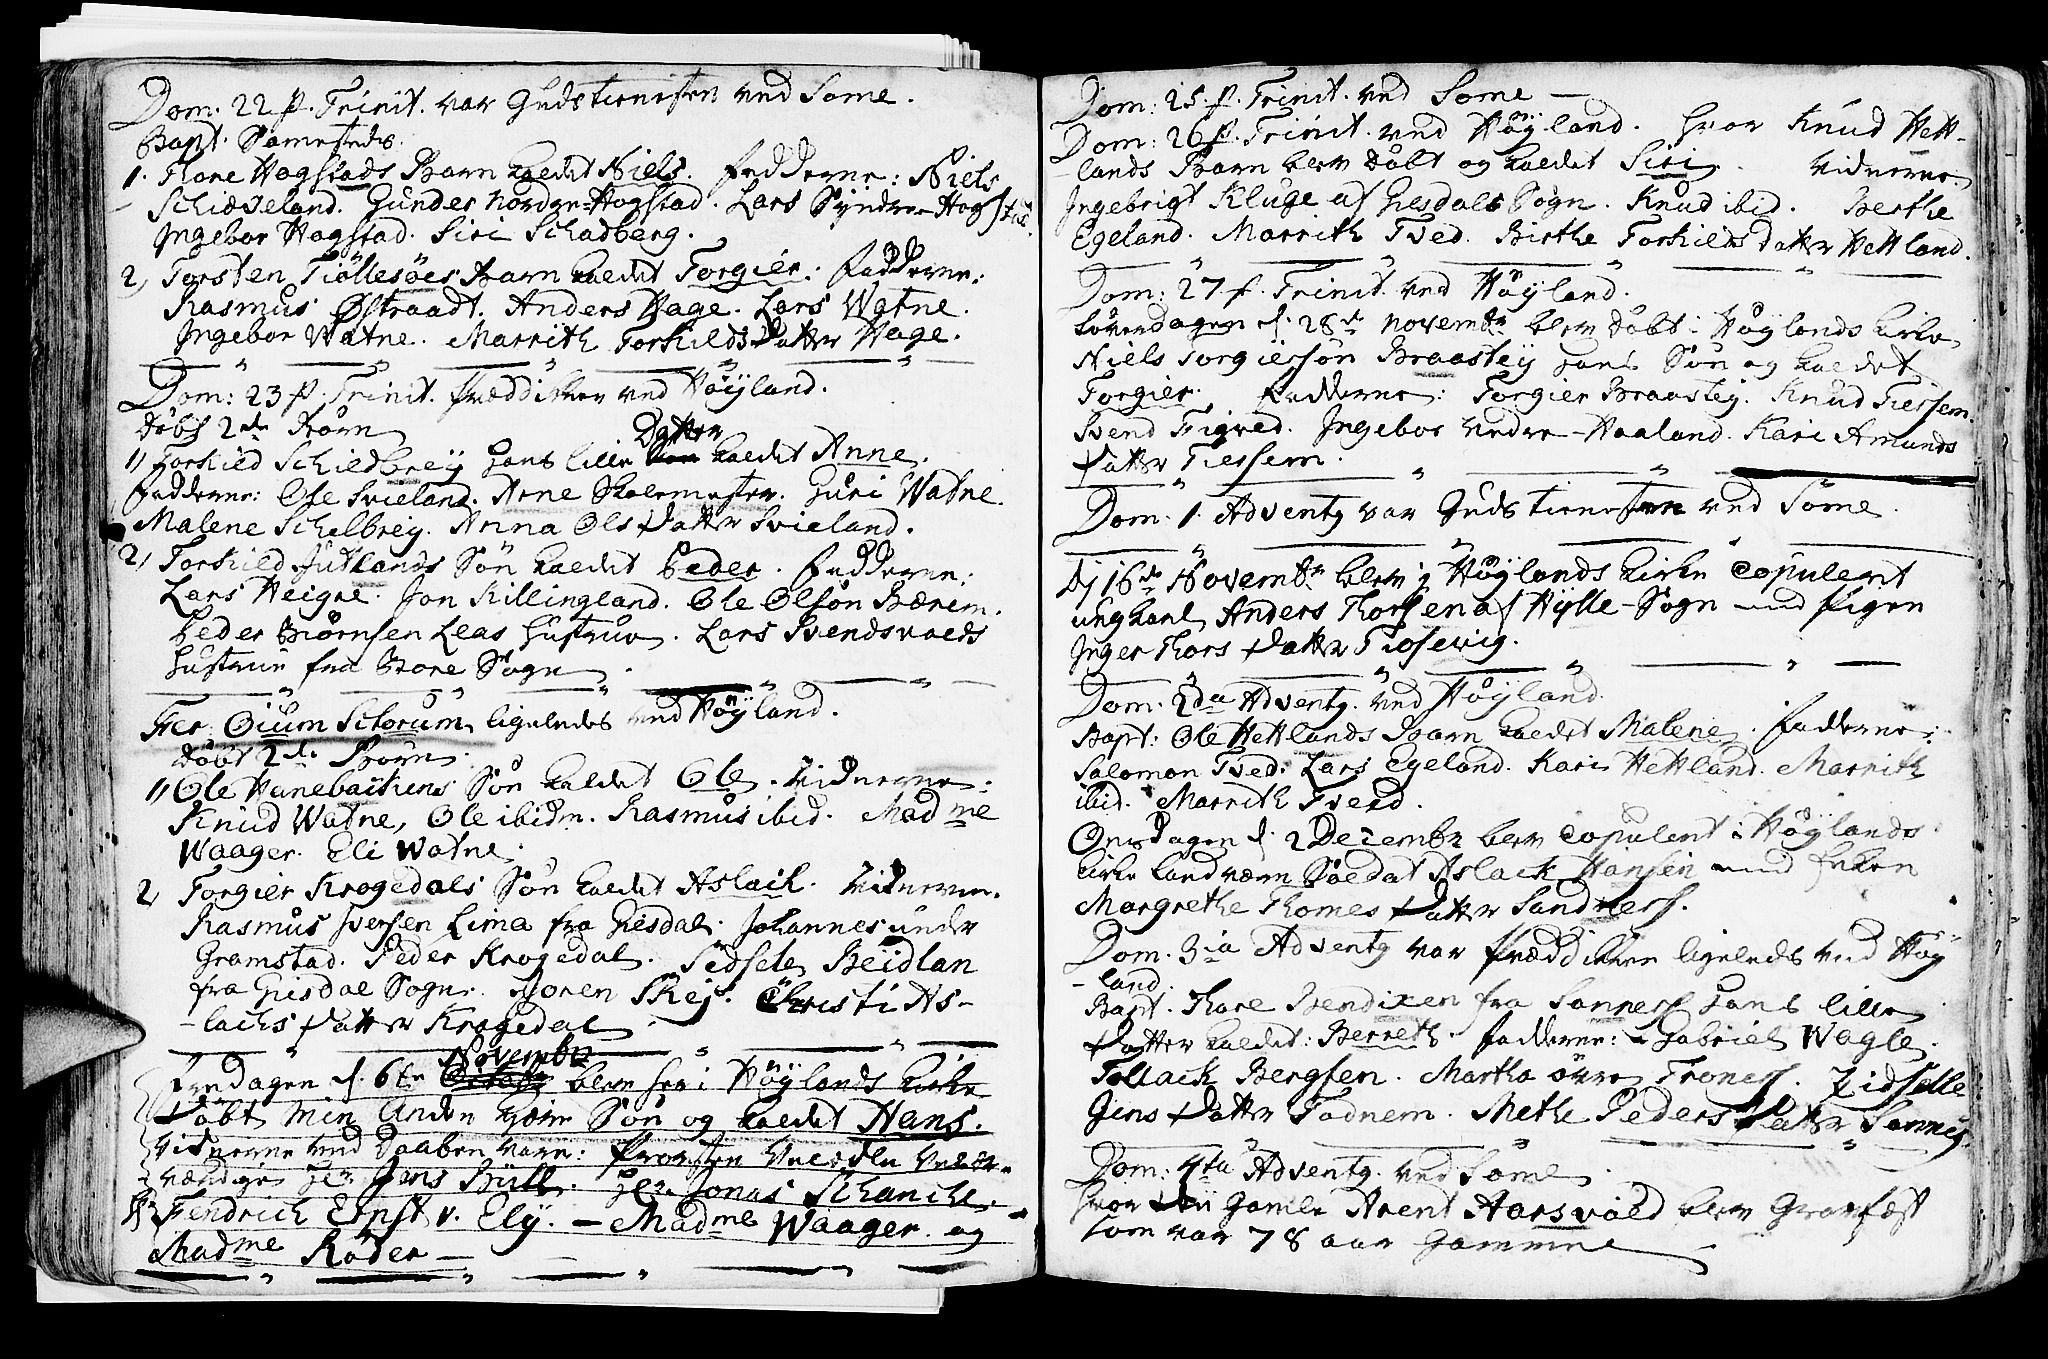 Dom: 22 p. Trinit. var Gudstienesten ved Some.
Bapt. Sammesteds:
1. Tore Hogstads Barn kaldet Niels. Fadderne: Niels
Schiæveland. Gunder Nordre-Hogstad. Lars Syndre-Hogstad.
Ingebor Hogstad. Siri Schadberg.
2) Torsten Tiøllesøes Barn kaldet Torgier. Fadderne:
Rasmus Østraadt. Anders Hage. Lars Watne.
Ingebor Watne. Marrith Torkilds Datter Hage.
Dom: 23 p. Trinit. Prædikken ved Høyland.
Døbt 2de Børn
1) Torkild Schieldbrey hans lille Datter kaldet Anne.
Fadderne: Ole Svieland. Arne Skolemester. Guri Watne.
Malene Schelbrey. Anna Ols Datter Svieland.
2) Torkild Jutlands Søn kaldet Peder. Fadderne:
Lars Heigre. Jon Killingland. Ole Olsøn Bærem.
Peder Biørnsen Leas Hustrue. Lars Svendsvolds
Hustrue fra Bore Sogn.
Fer. Oium Sctorum ligeledes ved Høyland.
Døbt 2de Børn
1) Ole Hanebachens Søn kaldet Ole. Vidnerne:
Knud Watne, Ole ibidm. Rasmus ibid. Madme
Waager. Eli Watne.
2) Torgier Krogedals Søn kaldet Aslach. Vidnerne.
Rasmus Iversen Lima fra Giesdal. Johannes under
Gramstad. Peder Krogedal. Sidsele Beidlan
fra Giesdal Sogn. Soren Skej. Christi As-
-lachs Datter Krogedal.
Løverdagen d. 6te Novembr blev her i Høylands Kirke
Døbt Min Anden kiære Søn og kaldet Hans.
Vidnerne ved Daaben vare: Provsten Velædle Velær-
værdige Hr Jens Bull. Hr. Jonas Schanche.
Hr Fendrich Ernst v. Ely. - Madme Waager. og
Madme Røder
Dom: 25 p. Trinit. ved Some
Dom: 26 p. Trinit. ved Høyland. hvor Knud Hett-
-lands Barn blev Døbt og kaldet Siri. Vidnerne.
Ingebrigt Kluge af Giesdals Sogn. Knud ibid. Berthe
Egeland. Marrith Tved. Birthe Torkilds datter Hettland.
Dom: 27 p. Trinit. ved Høyland.
Løverdagen d. 28de Novembr blev Døbt i Høylands Kirke
Niels Torgiersøn Braastey hans Søn og kaldet
Torgier. Fadderne: Torgier Braastey. Knud Tiessem.
Svend Figved. Ingebor Nedre-Haaland. Kari Amunds
Datter Tiessem.
Dom: 1. Adventg var Guds tienesten ved Some.
Dj 16de Novembr blev i Høylands Kirke Copuleret
ungkarl Anders Thorsen af Hylle-Sogn med Pigen
Inger Thors Datter Tiosevig.
Dom: 2da Adventg. ved Høyland
Bapt: Ole Hettlands Barn kaldet Malene. Fadderne:
Salomon Tved. Lars Egeland. Kari Hettland. Marrith
ibid. Marrith Tved.
Onsdagen d. 2 Decembr blev Copulert i Høylands
Kirke Landværn Soldat Aslack Hansen med Enken
Margrethe Thomes Datter Sandness.
Dom. 3ia Adventg var Prædikken ligeledes ved Høy
-land.
Bapt. Thore Bendixen fra Sanness hans lille
Datter kaldet: Berreth. Fadderne: Gabriel Wagle.
Tollack Bergsen. Martha øvre Troness. Zidselle
Jens Datter Todnem. Methe Peders Datter Sannes.
Dom: 4ta Adventg. ved Some
hvor Gamle Arent Aarsvold blev Gravfæst
som var 78 aar Gammel